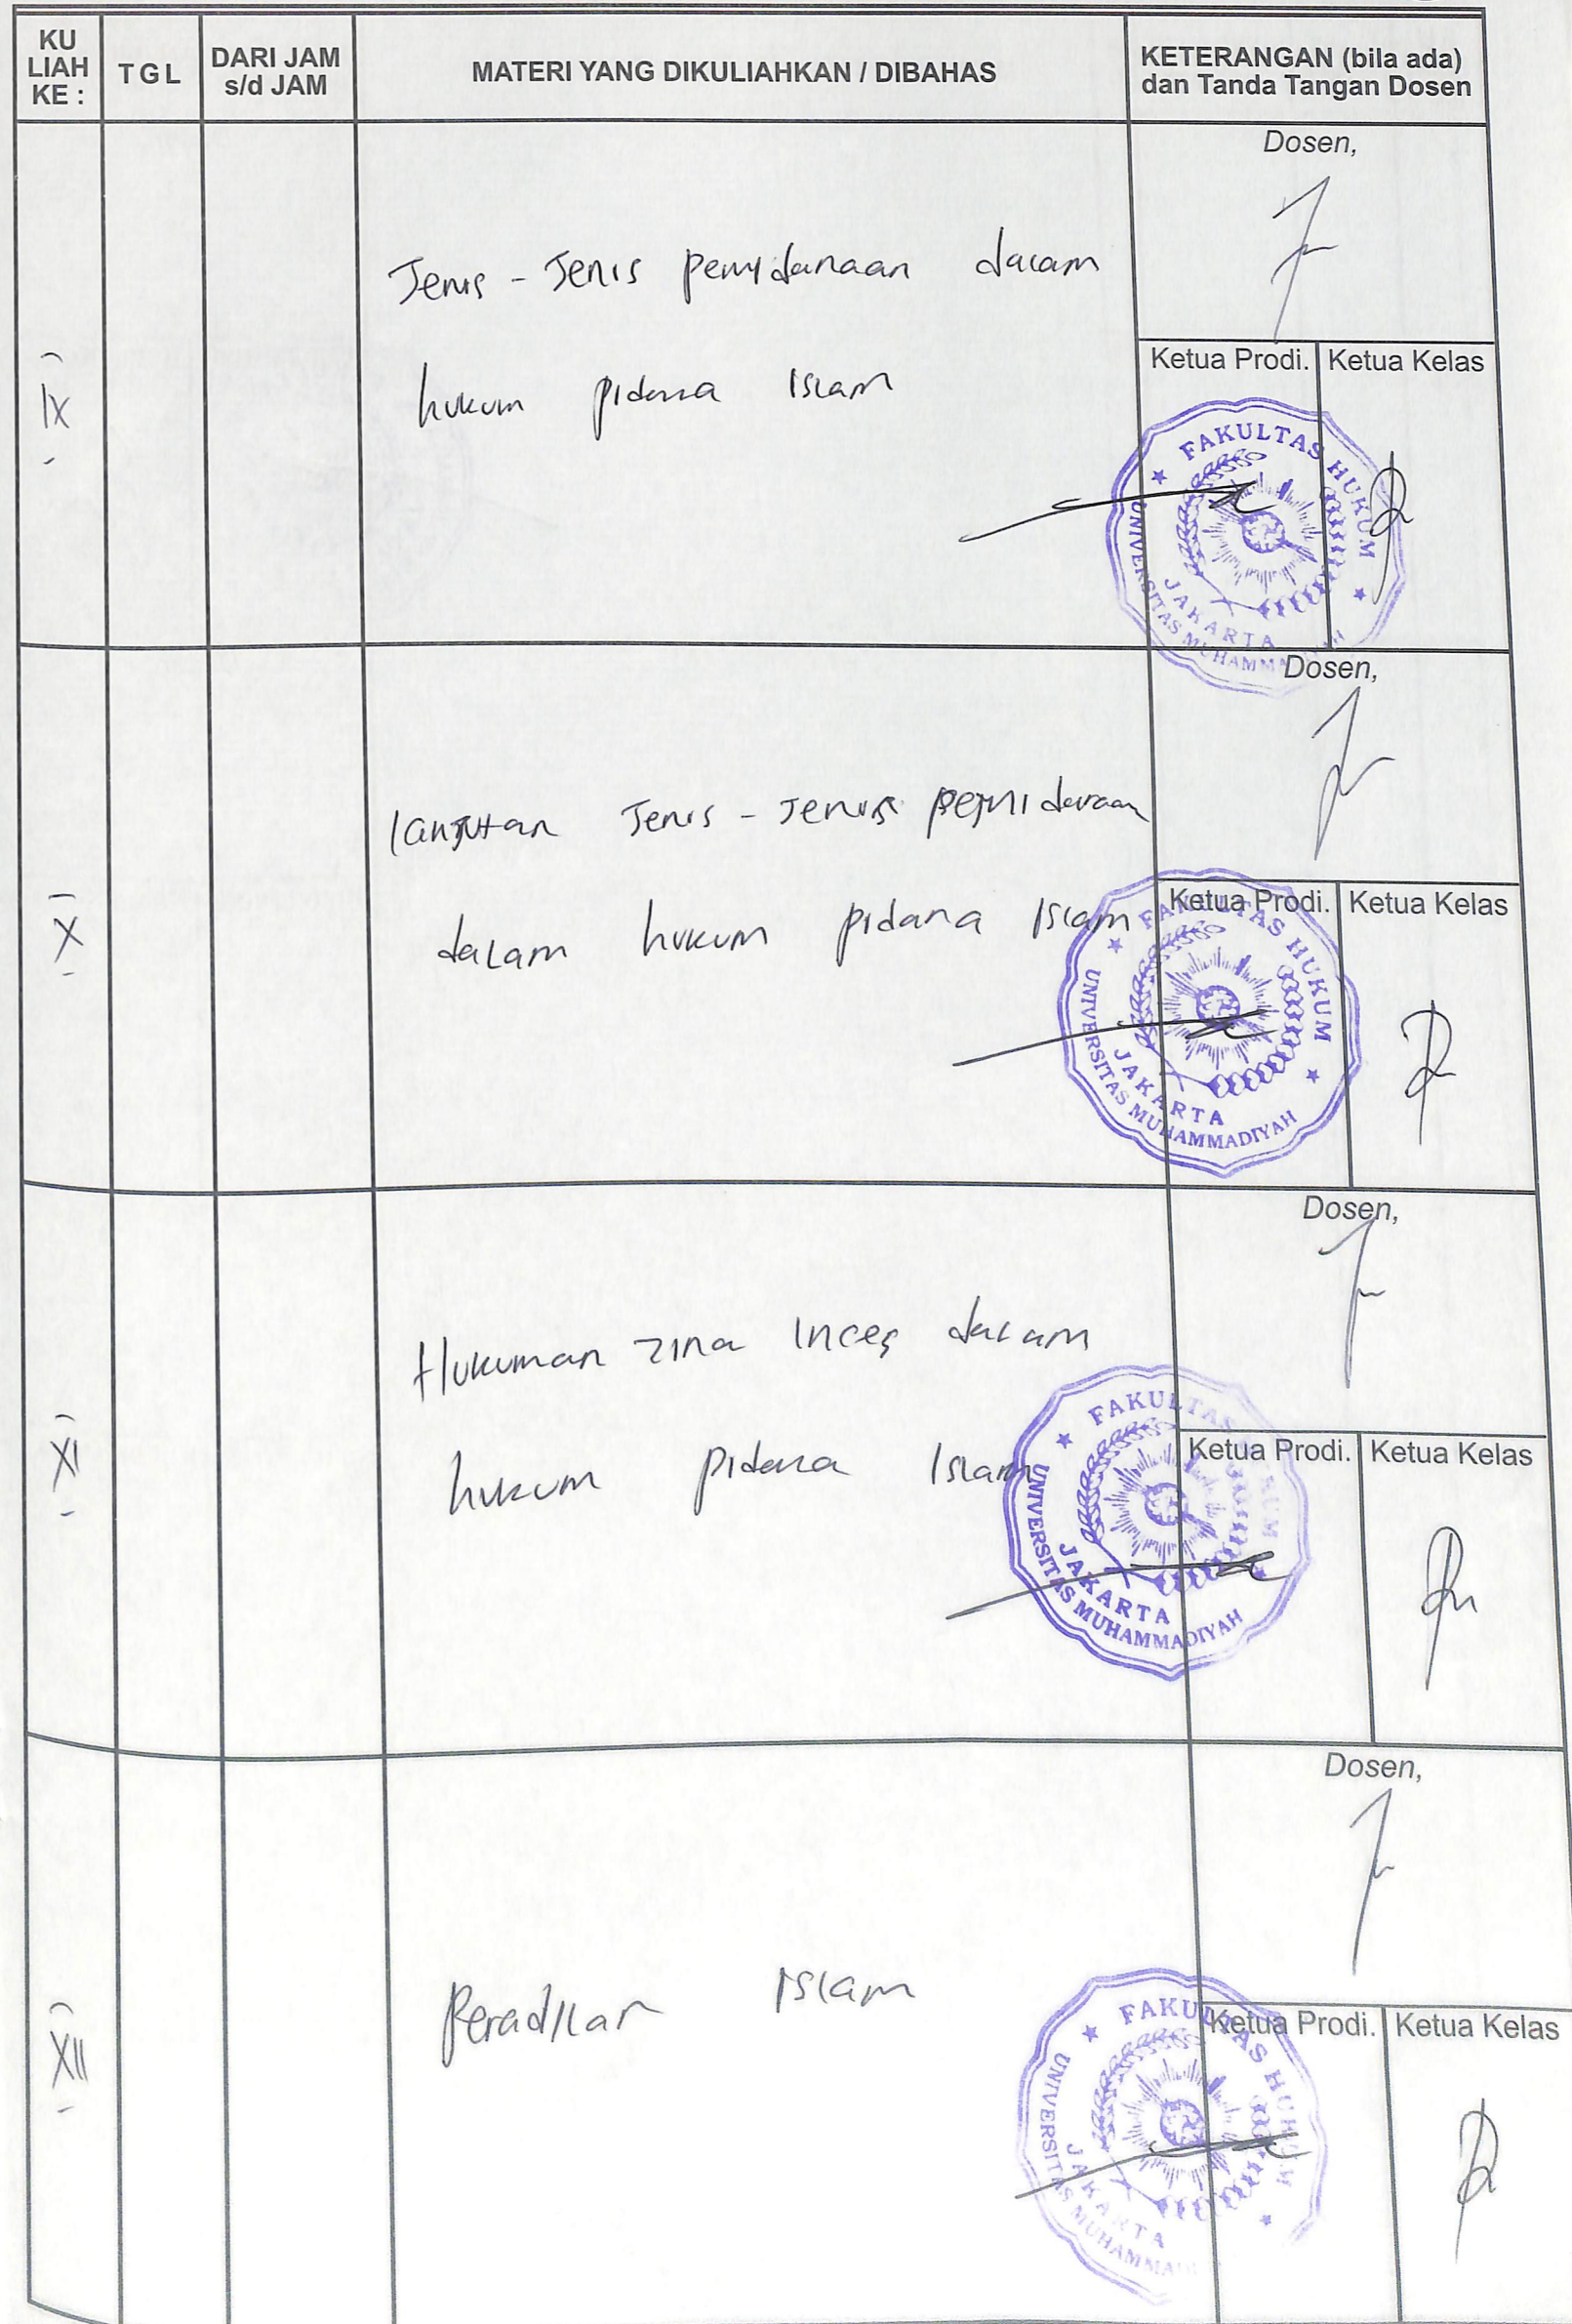 KU LIAH KE :
TGL
DARI JAM s/d JAM
MATERI YANG DIKULIAHKAN / DIBAHAS
KETERANGAN (bila ada) dan Tanda Tangan Dosen
IX
Jenis - Jenis pemidanaan dalam
hukum pidana Islam
Dosen,
Ketua Prodi. Ketua Kelas
FAKULTAS HUKUM
JAKARTA
UNIVERSITAS MUHAMMADIYAH
X
lanjutan Jenis - Jenis pemidanaan
dalam hukum pidana Islam
Dosen,
Ketua Prodi. Ketua Kelas
FAKULTAS HUKUM
JAKARTA
UNIVERSITAS MUHAMMADIYAH
XI
Hukuman zina Inces dalam
hukum pidana Islam
Dosen,
Ketua Prodi. Ketua Kelas
FAKULTAS HUKUM
JAKARTA
UNIVERSITAS MUHAMMADIYAH
XII
Peradilan Islam
Dosen,
Ketua Prodi. Ketua Kelas
FAKULTAS HUKUM
JAKARTA
UNIVERSITAS MUHAMMADIYAH